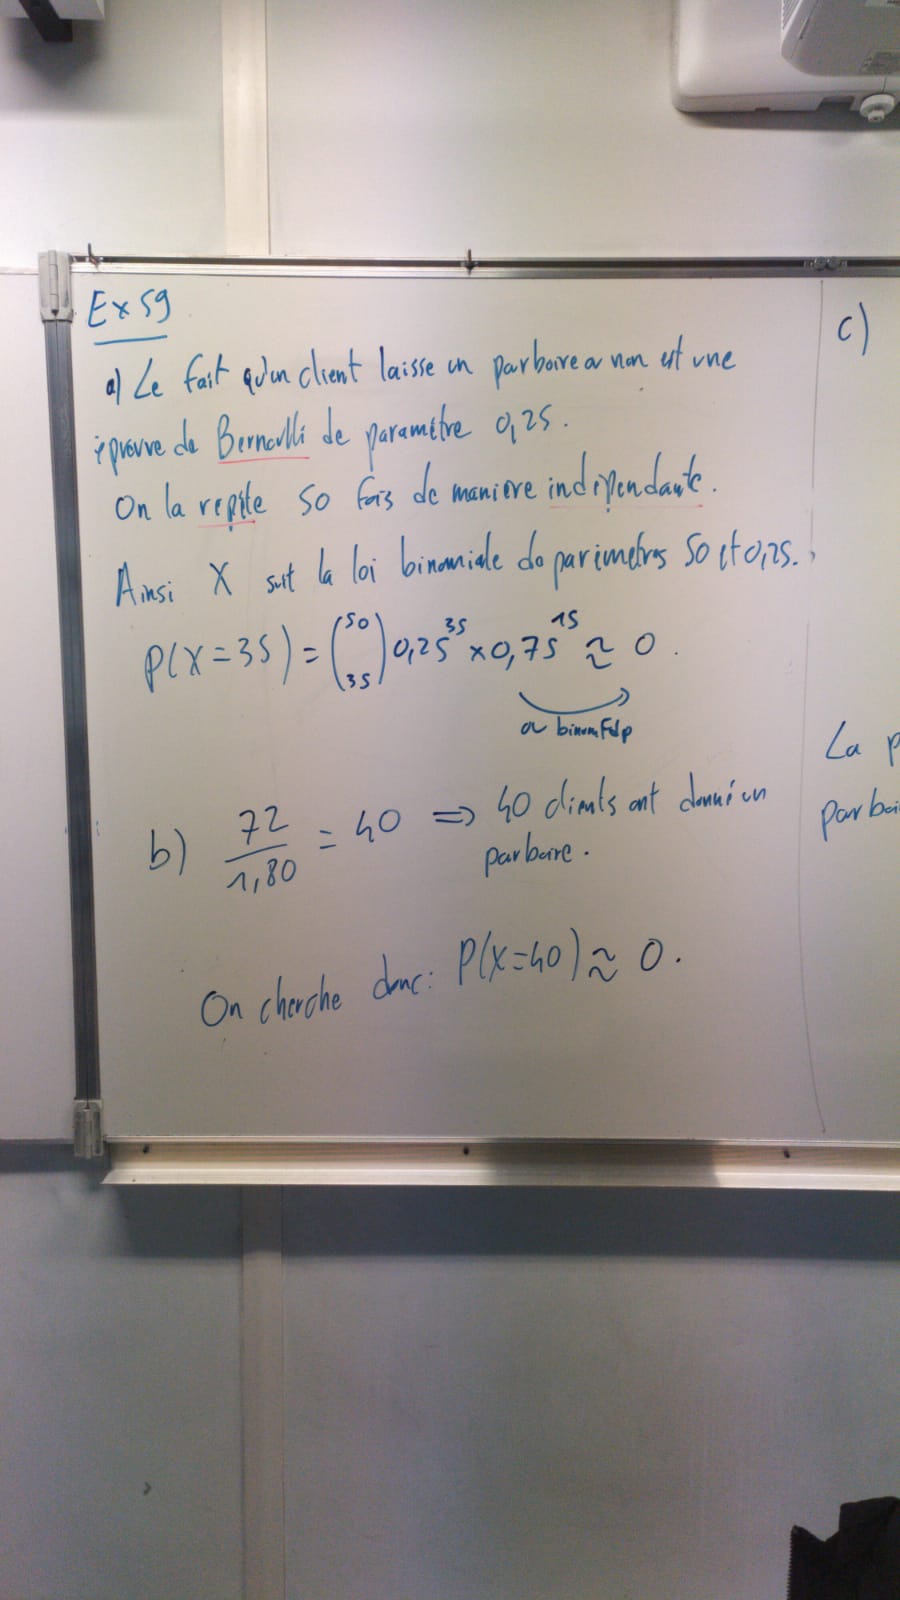 Ex 59
a) Le fait qu'un client laisse un pourboire ou non est une
épreuve de Bernoulli de paramètre 0,25.
On la repète 50 fois de manière indépendante.
Ainsi X suit la loi binomiale de paramètres 50 et 0,25.
P(X=35) = (50 35) 0,25^35 × 0,75^15 ≈ 0.
ou binomFdp
b) 72/1,80 = 40 ⇒ 40 clients ont donné un
pourboire.
On cherche donc: P(X=40) ≈ 0.
c)
La p
pourboi